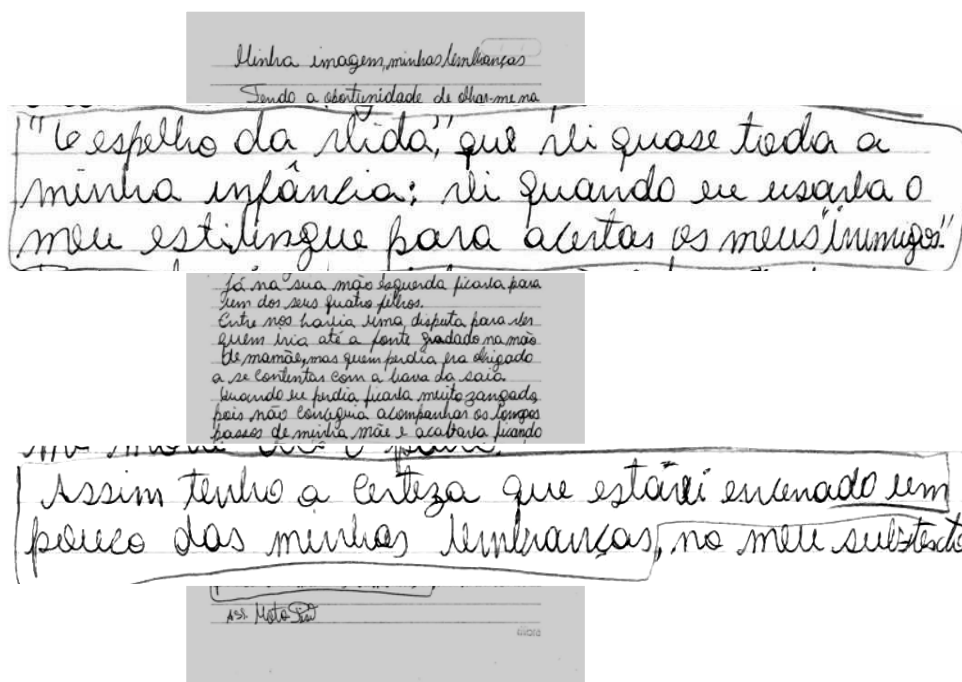 Minha imagem, minhas lembranças
Tendo a oportunidade de olhar-me na
"O espelho da vida", que vi quase toda a
minha infância: vi quando eu usava o
meu estilingue para acertar os meus "inimigos".
Já na sua mão esquerda ficava para
um dos seus quatro filhos.
Entre nós havia uma disputa para ver
quem iria até a fonte grudado na mão
de mamãe, mas quem perdia era obrigado
a se contentar com a barra da saia.
Quando eu perdia ficava muito zangado
pois não conseguia acompanhar os longos
passos de minha mãe e acabava ficando
Assim tenho a certeza que estarei encenado um
pouco das minhas lembranças, no meu subtexto
Ass.